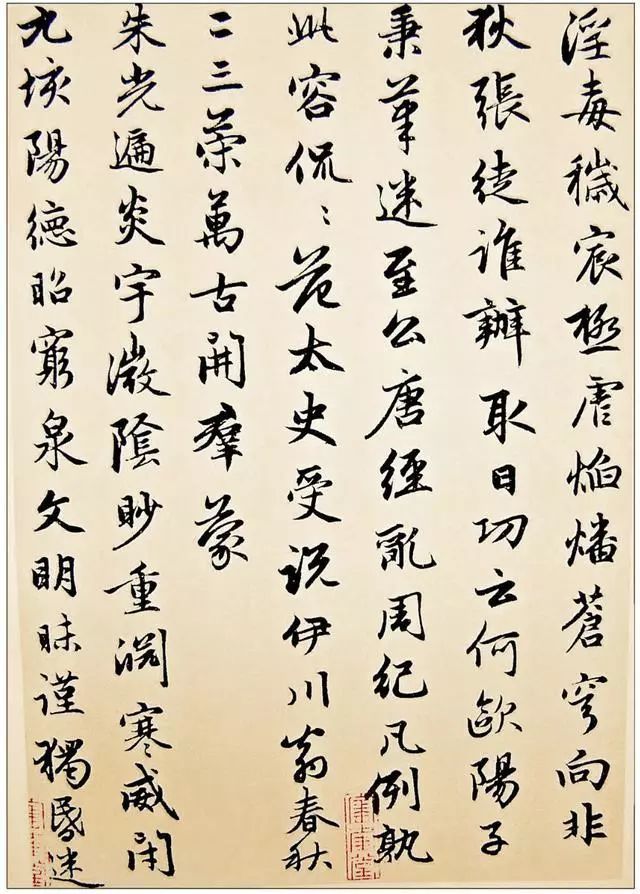 淫毒穢宸極虐焰燔蒼穹向非
狄張徒誰辦取日功云何歐陽子
秉筆迷至公唐經亂周紀凡例孰
此容侃〻范太史受説伊川翁春秋
二三策萬古開羣蒙
朱光遍炎宇微陰眇重淵寒威閉
九垓陽德昭窮泉文明昧謹獨昏迷